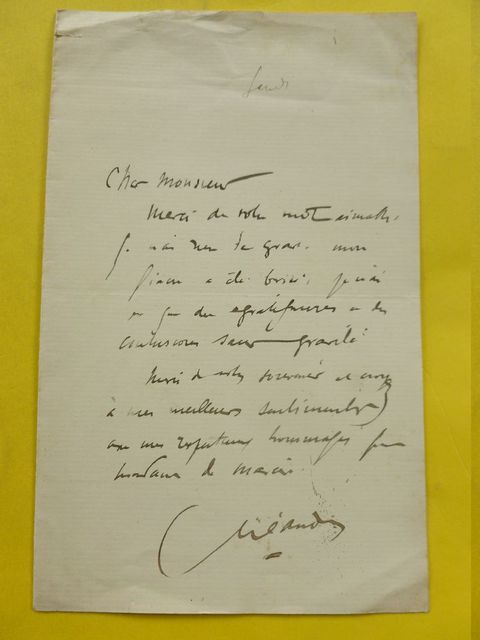 Lundi
Cher Monsieur
Merci de votre mot aimable.
Je n'ai rien de grave. mon
fiacre a été brisé, je n'ai
eu que des égratignures et des
contusions sans gravité.
Merci de votre souvenir et croyez
à mes meilleurs sentiments
avec mes respectueux hommages pour
Madame de